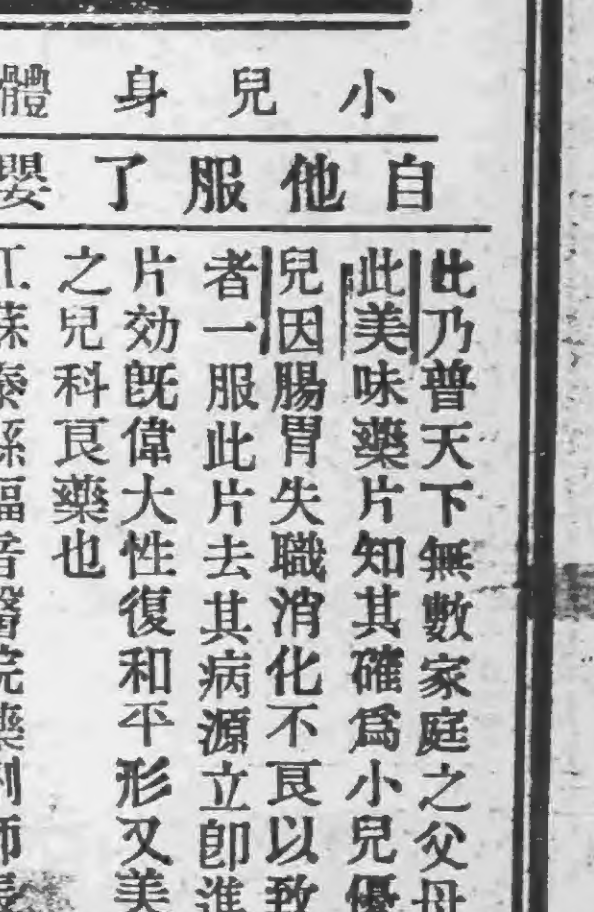 小兒身體
自他服了嬰
此乃普天下無數家庭之父母
此美味藥片知其確爲小兒優
兒因腸胃失職消化不良以致
者一服此片去其病源立卽進
片効旣偉大性復和平形又美
之兒科良藥也
江蘇泰縣福音醫院藥劑師張